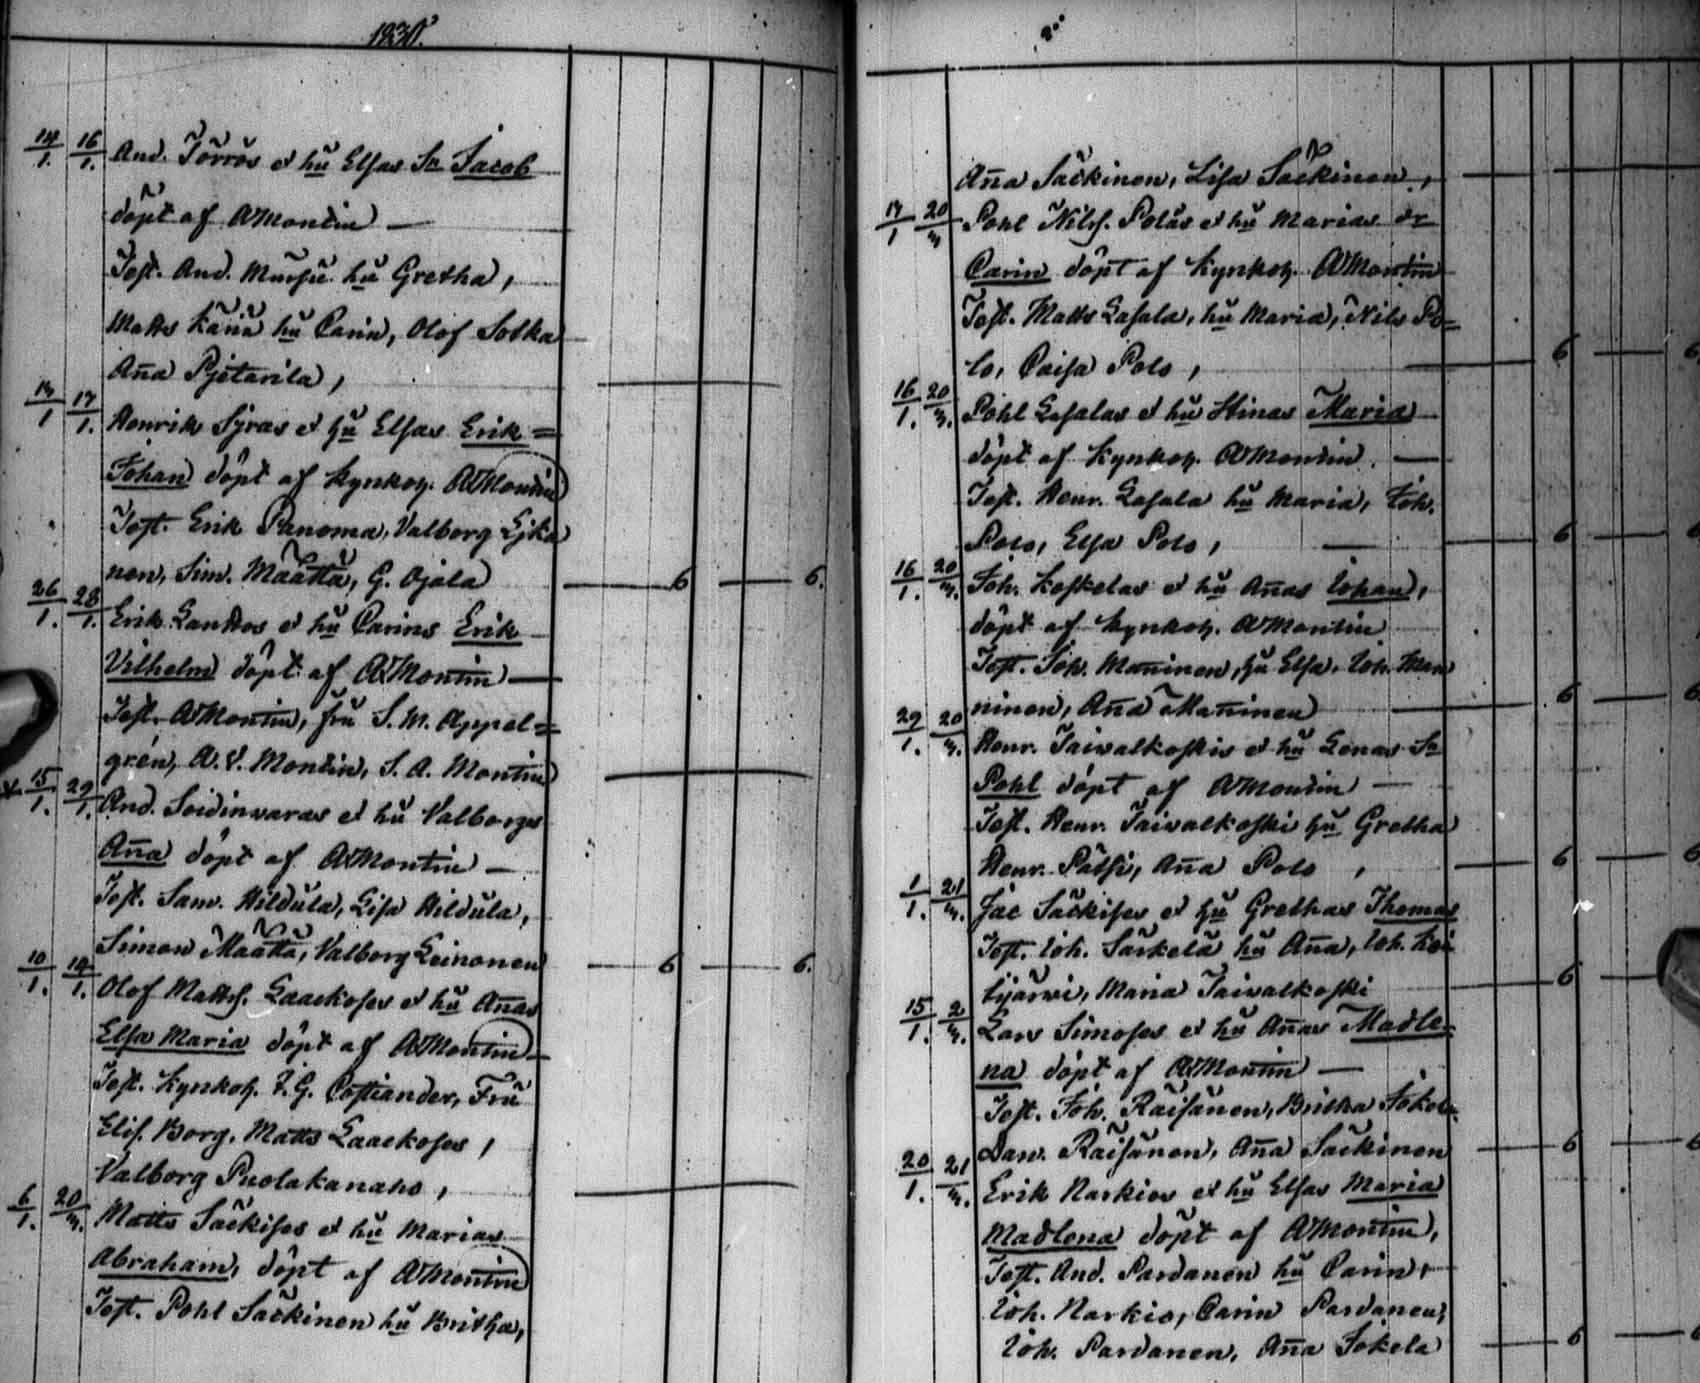 1830.
14/1. 16/1. And. Törrös et hŭ Elsas Sn Jacob
döpt af AMontin —
Test. And. Mursu hŭ Gretha,
Matts Känä hŭ Carin, Olof Sotka
Aña Pjetarila,
14/1 17/1. Henrik Syras et hŭ Elsas Erik=
Johan döpt af Kynkoh. AMontin
Test. Erik Panoma, Valborg Ljka
nen, Sim. Määttä, G. Ojala — 6 — 6.
26/1. 28/1. Erik Lanttos et hŭ Carins Erik
Vilhelm döpt af AMontin —
Test. AMontin, frŭ S. M. Appel=
grén, A. V. Montin, S. A. Montin
15/1. 29/1. And. Soidinvaras et hŭ Valborgs
Aña döpt af AMontin —
Test. Sam. Hildŭla, Lisa Hildŭla,
Simon Määttä, Valborg Leinonen — 6 — 6.
10/1. 14/1. Olof Mattss. Laackoses et hŭ Añas
Elsa Maria döpt af AMontin —
Test. Kynkoh. F. G. Costiander, Frŭ
Elis. Borg. Matts Laackoses,
Valborg Puolakanaho,
6/1. 20/3. Matts Säckises et hŭ Marias
Abraham, döpt af AMontin
Test. Pohl Säckinen hŭ Britha,
Aña Säckinen, Lisa Säckinen,
14/1 20/3 Pohl Nilss. Polos et hŭ Marias dr
Carin döpt af Kynkoh. AMontin
Test. Matts Lasala, hŭ Maria, Nils Po=
lo, Caisa Polo, — 6 — 6
16/1. 20/3. Pohl Lasalas et hŭ Stinas Maria
döpt af Kynkoh. AMontin. —
Test. Henr. Lasala hŭ Maria, Joh.
Polo, Elsa Polo, — 6 — 6
16/1. 20/3. Joh. Koskelas et hŭ Añas Johan,
döpt af Kynkoh. AMontin
Test. Joh. Mañinen, hŭ Elsa, Joh. Man
ninen, Aña Mañinen — 6 — 6
29/1. 20/3. Henr. Taivalkoskis et hŭ Lenas Sn
Pohl döpt af AMontin —
Test. Henr. Taivalkoski hŭ Gretha
Henr. Pätsi, Aña Polo, — 6 — 6
1/1. 21/3. Jac Säckises et hŭ Grethas Thomas
Test. Joh. Särkelä hŭ Aña, Joh. Koi
tijärvi, Maria Taivalkoski — 6 — 6
15/1. 2/3. Lars Simoses et hŭ Añas Madle=
na döpt af AMontin —
Test. Joh. Räisänen, Britha Jokela
Dav. Räisänen, Aña Säckinen — 6 — 6
20/1. 21/3. Erik Narkios et hŭ Elsas Maria
Madlena döpt af AMontin,
Test. And. Pardanen hŭ Carin,
Joh. Narkio, Carin Pardanen,
Joh. Pardanen, Aña Jokela — 6 — 6